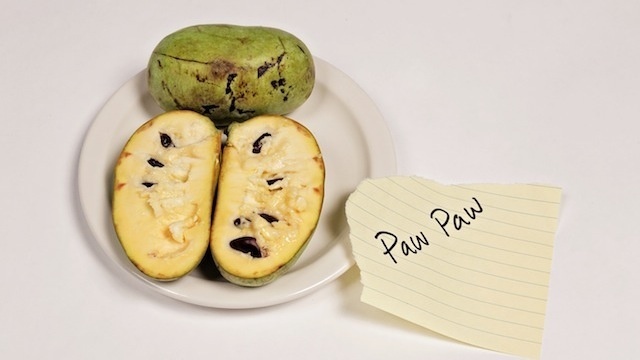 Paw Paw